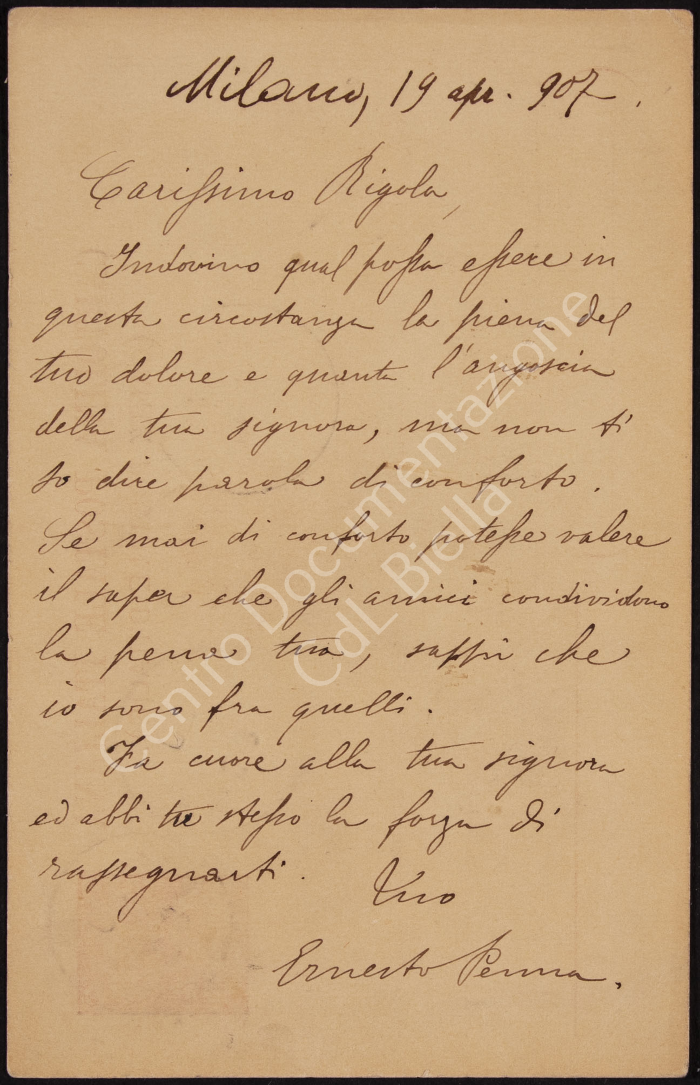 Milano, 19 apr. 907.
Carissimo Rigola,
Indovino qual possa essere in
questa circostanza la piena del
tuo dolore e quanta l'angoscia
della tua signora, ma non ti
so dire parola di conforto.
Se mai di conforto potesse valere
il saper che gli amici condividono
la pena tua, sappi che
io sono fra quelli.
Fa cuore alla tua signora
ed abbi tu stesso la forza di
rassegnarti.
Tuo
Ernesto Penna.
Centro Documentazione
CdL Biella